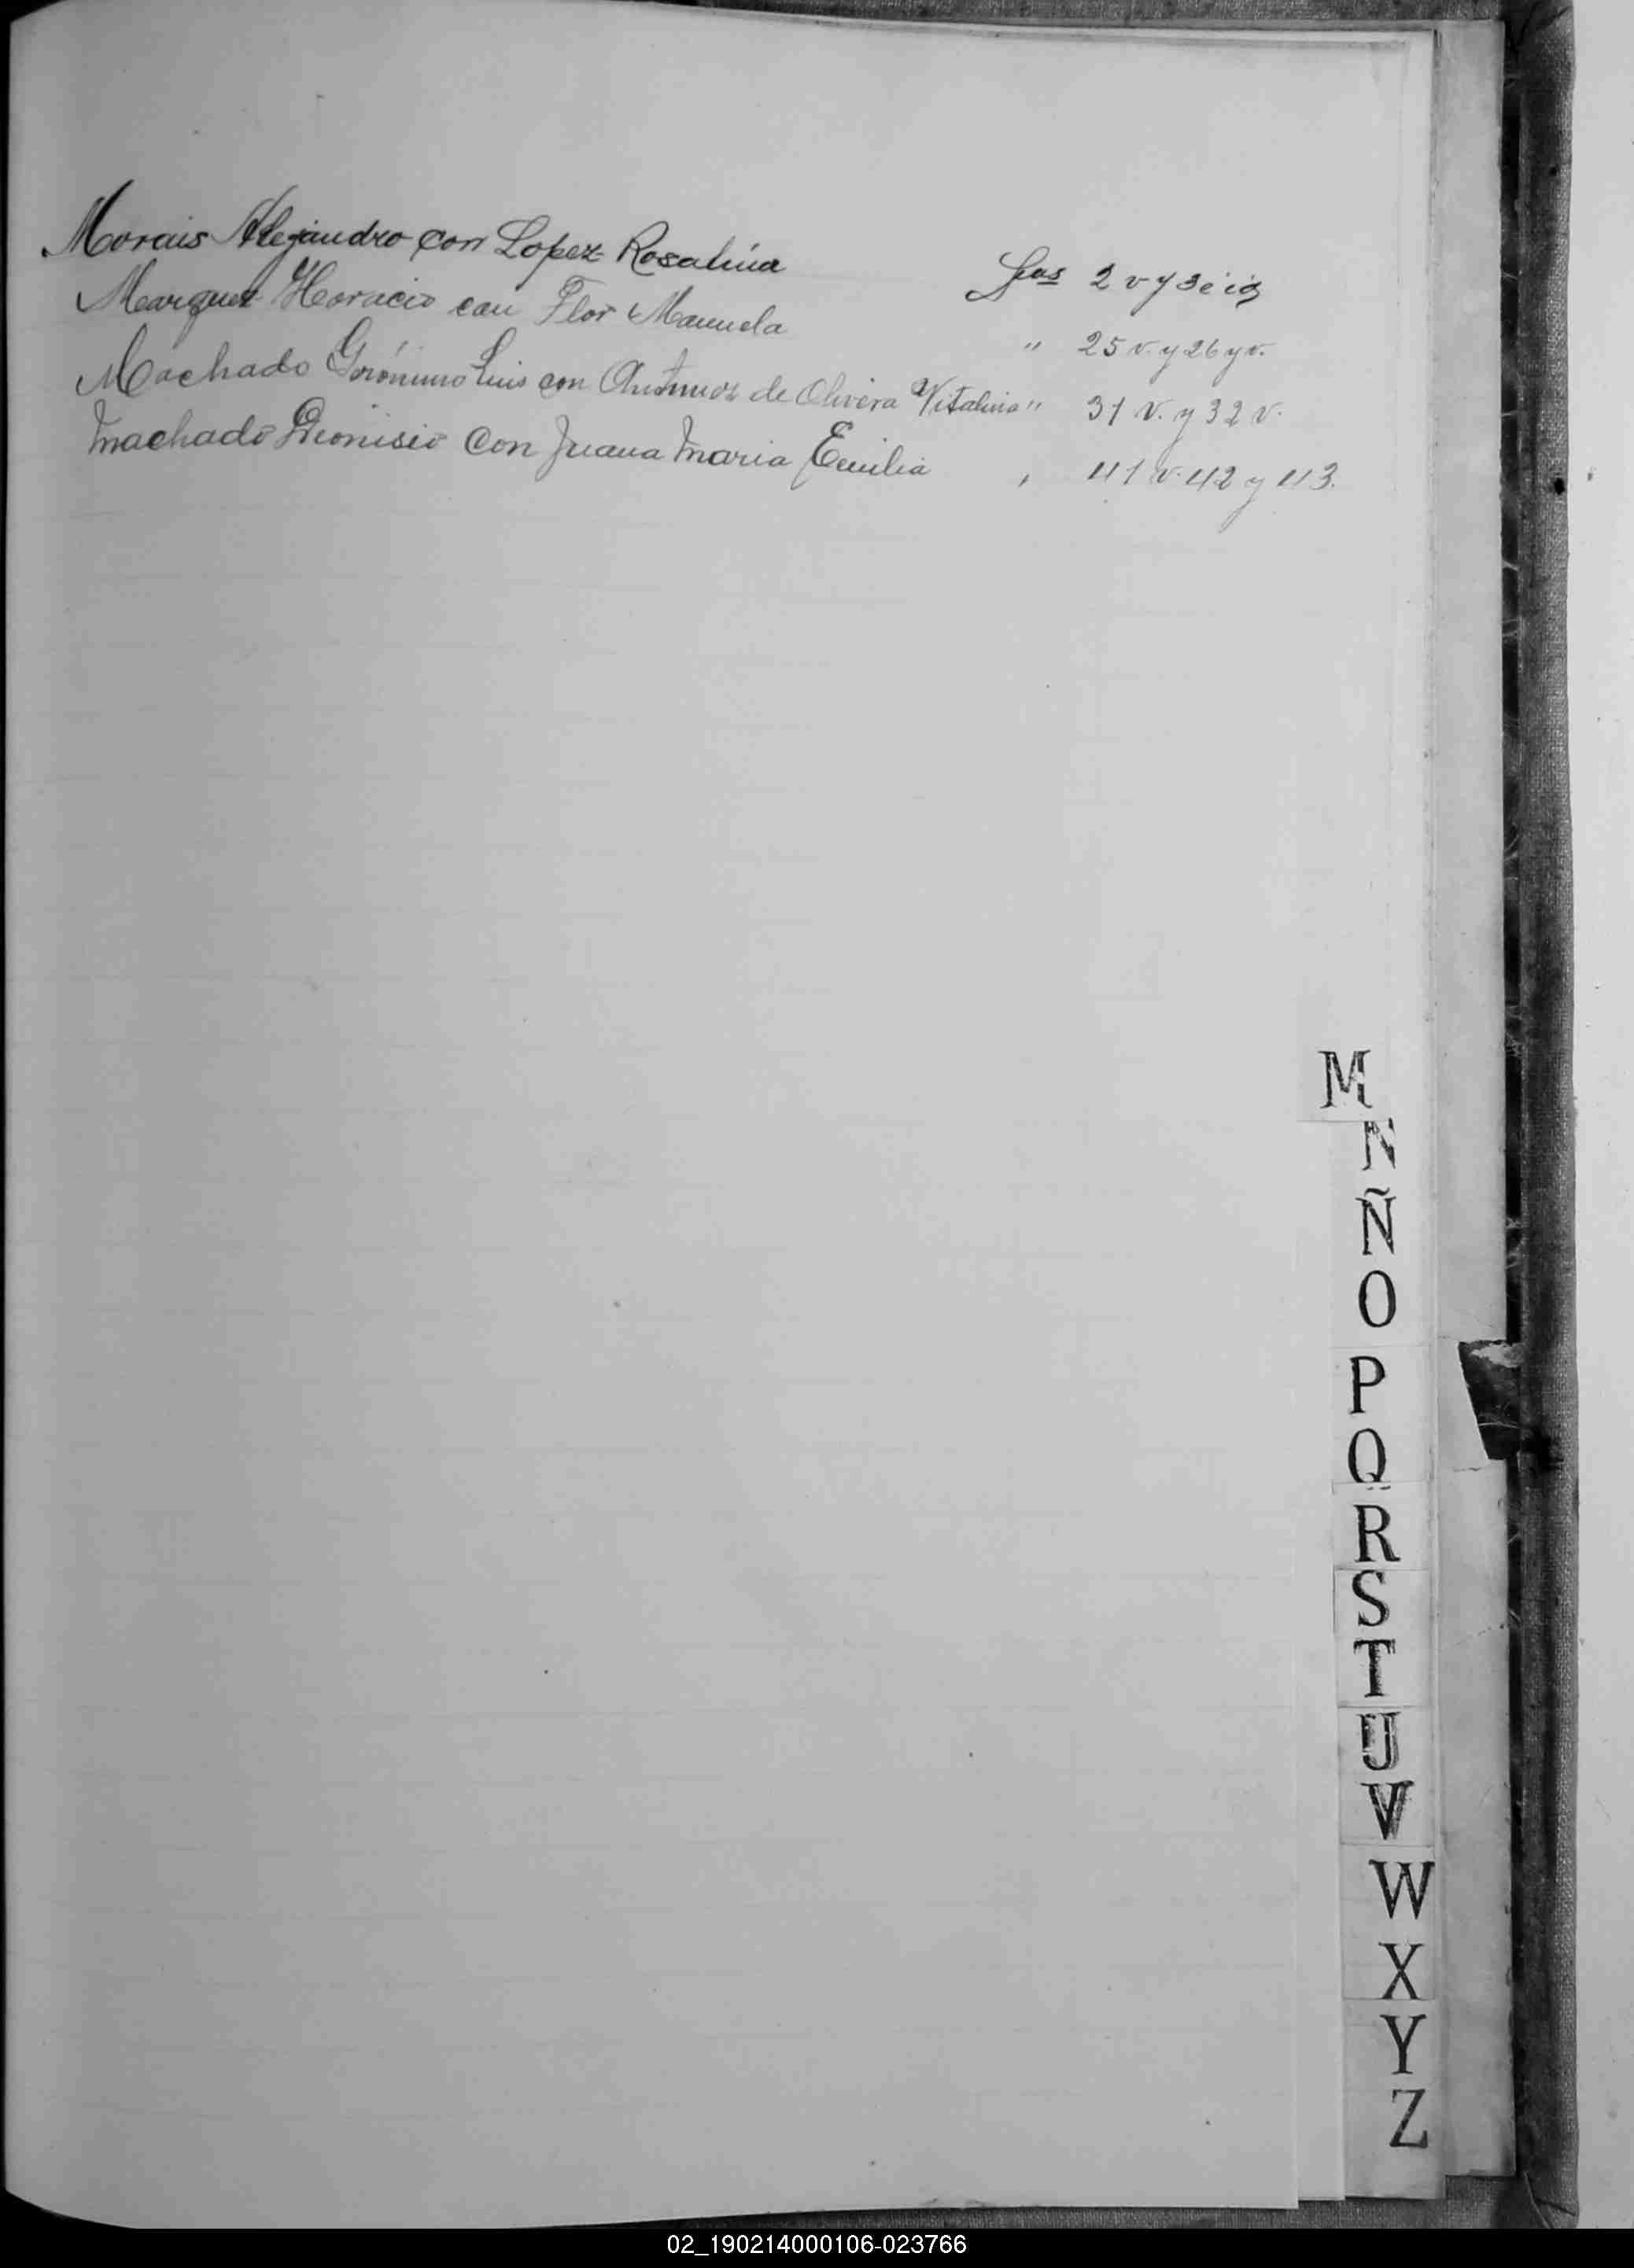 Morais Alejandro con Lopez Rosalina fjas 2 v y 3 e
Marquez Horacio con Flor Manuela " 25 v. y 26 y v.
Machado Gerónimo Luis con Antunez de Olivera Vitalina " 31 v. y 32 v.
Machado Dionisio con Juana Maria Emilia , 41 v. 42 y 43.
M
N
Ñ
O
P
Q
R
S
T
U
V
W
X
Y
Z
02_190214000106-023766